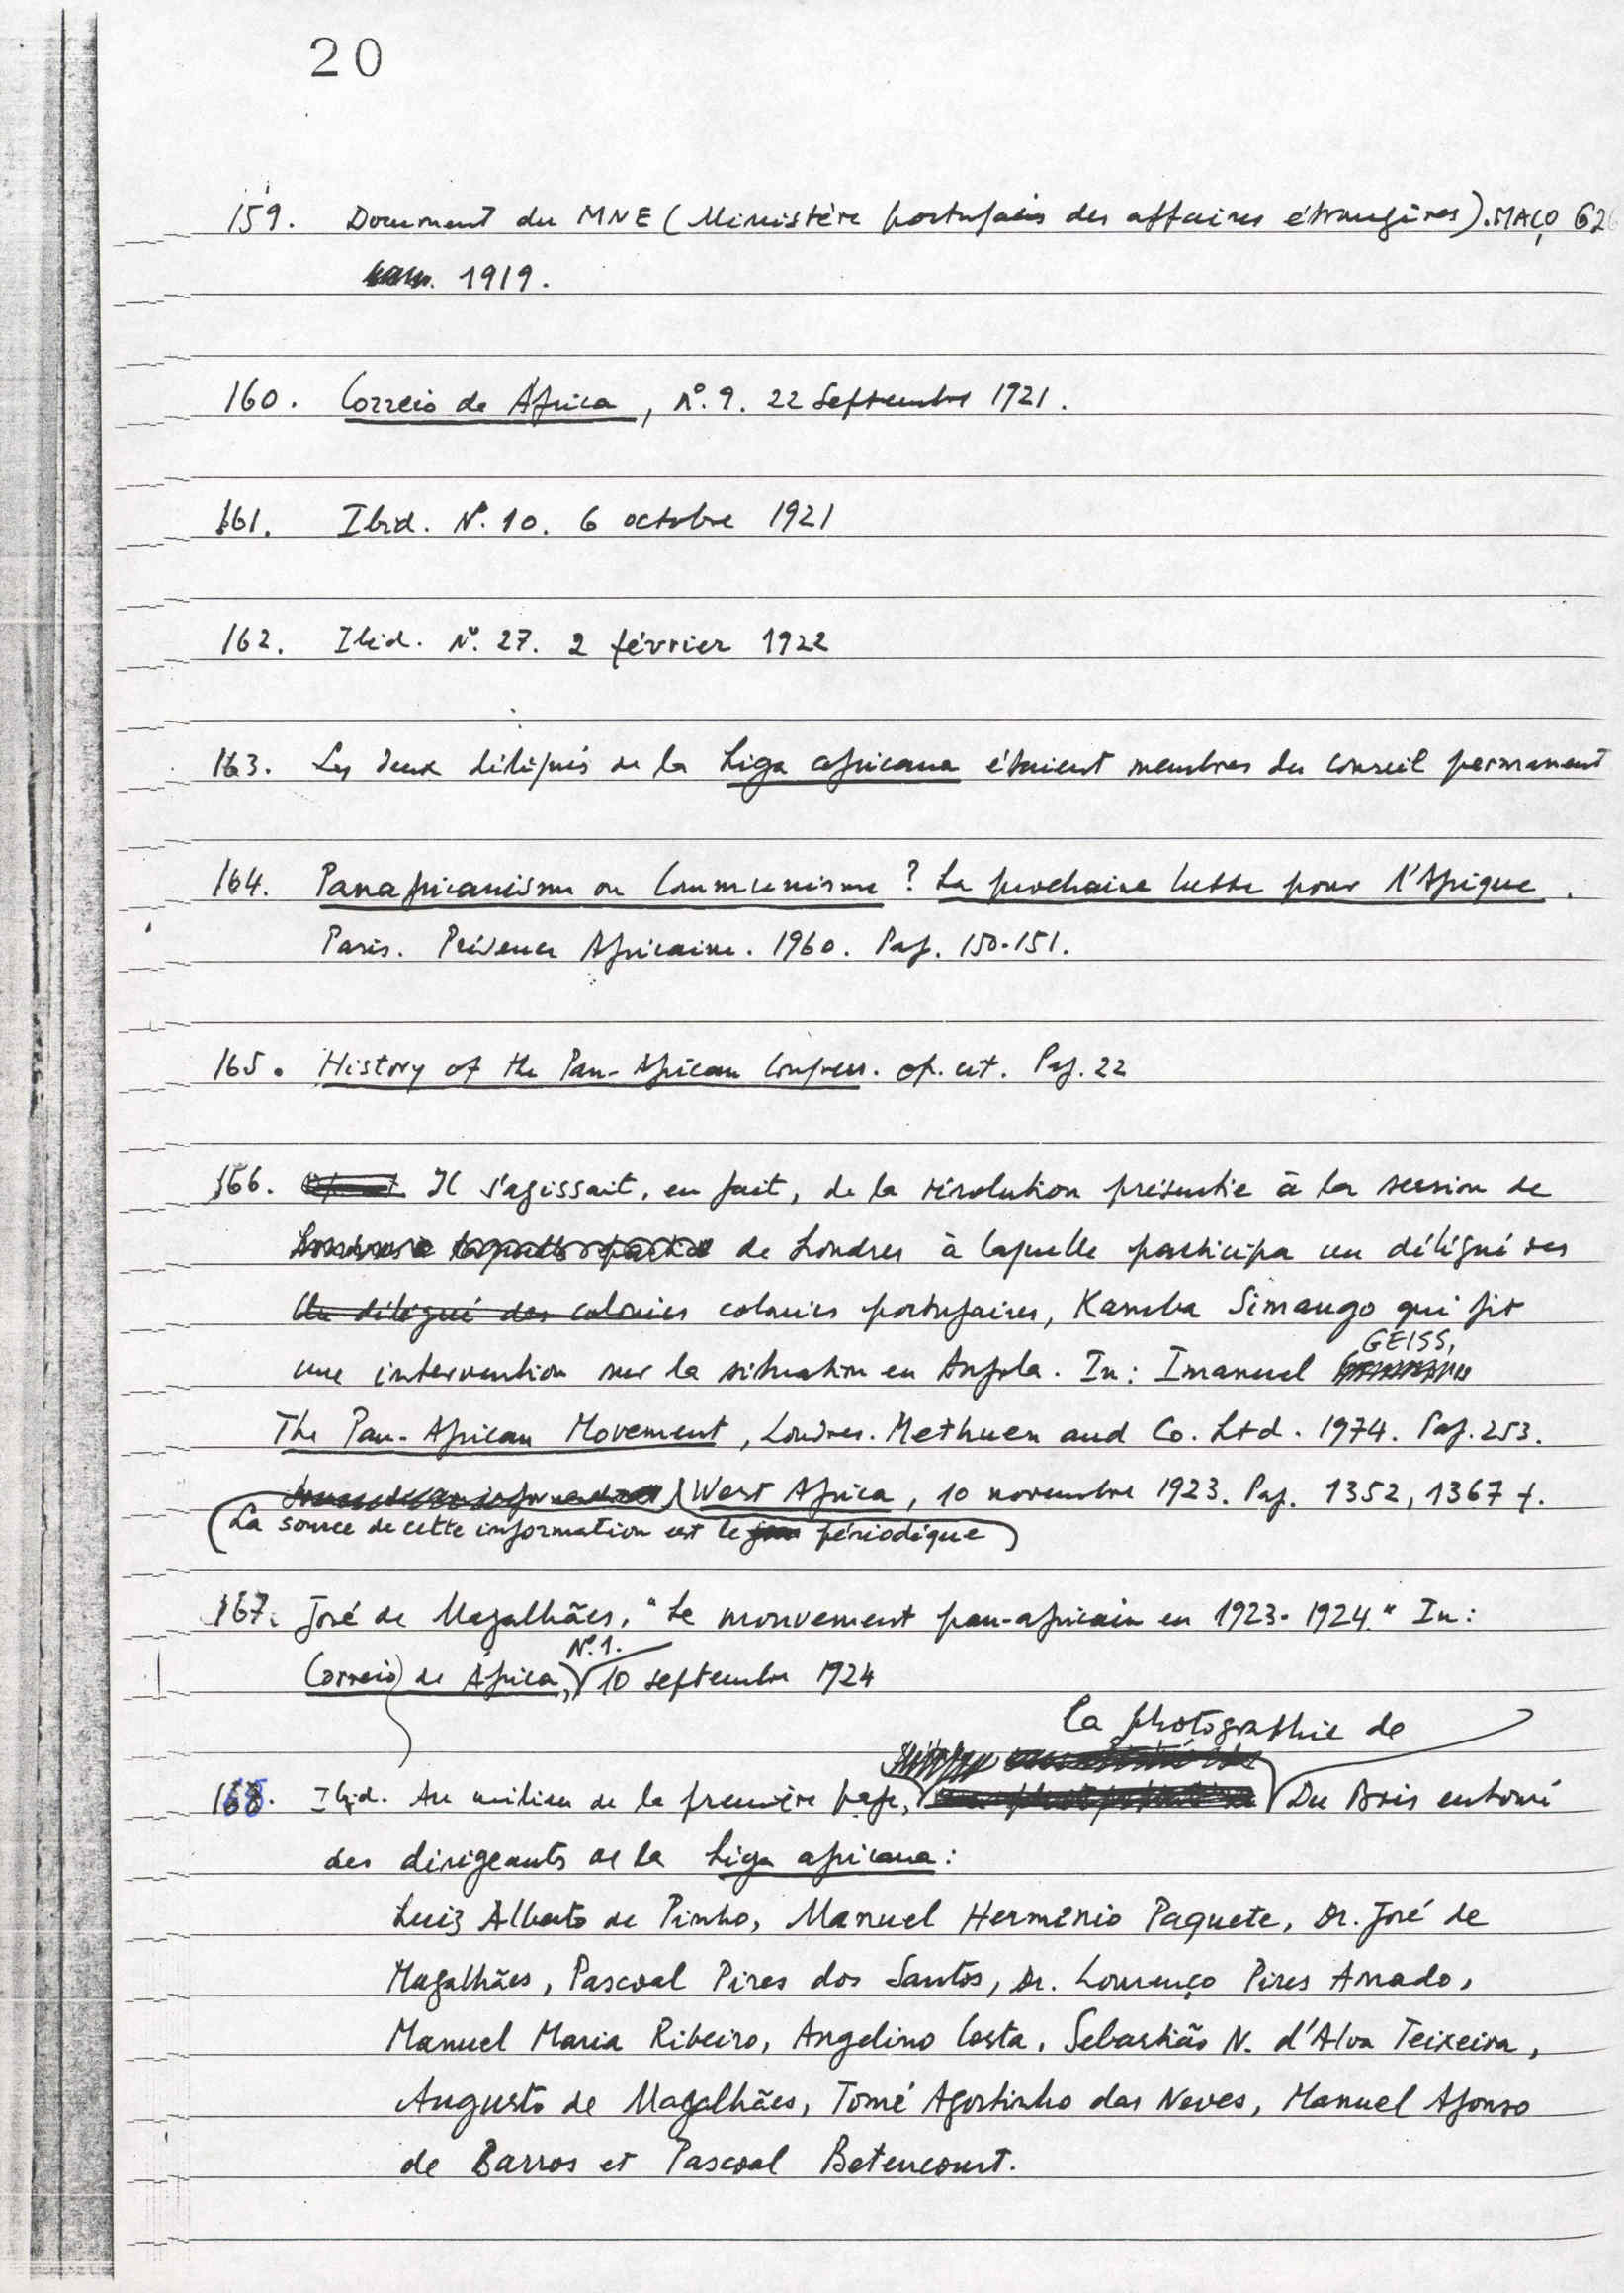 20
159. Document du MNE (Ministère portugais des affaires étrangères). MAÇO 626
1919.
160. Correio de África, Nº. 9. 22 Septembre 1921.
161. Ibid. Nº. 10. 6 octobre 1921
162. Ibid. Nº. 27. 2 février 1922
163. Les deux délégués de la Liga africana étaient membres du conseil permanent
164. Panafricanisme ou Communisme ? La prochaine lutte pour l'Afrique.
Paris. Présence Africaine. 1960. Pag. 150-151.
165. History of the Pan-African Congress. op. cit. Pag. 22
166. Il s'agissait, en fait, de la résolution présentée à la session de
de Londres à laquelle participa un délégué des
Un délégué des colonies colonies portugaises, Kamba Simango qui fit
GEISS,
une intervention sur la situation en Angola. In: Imanuel
The Pan-African Movement, Londres. Methuen and Co. Ltd. 1974. Pag. 253.
West Africa, 10 novembre 1923. Pag. 1352, 1367 f.
(La source de cette information est le périodique)
167. José de Magalhães, "Le mouvement pan-africain en 1923-1924." In:
Nº. 1.
Correio de África, 10 septembre 1924
la photographie de
168. Ibid. Au milieu de la première page, Du Bois entouré
des dirigeants de la Liga africana:
Luiz Alberto de Pinho, Manuel Hermínio Paquete, Dr. José de
Magalhães, Pascoal Pires dos Santos, Dr. Lourenço Pires Amado,
Manuel Maria Ribeiro, Angelino Costa, Sebastião N. d'Alva Teixeira,
Augusto de Magalhães, Tomé Agostinho das Neves, Manuel Afonso
de Barros et Pascoal Betencourt.